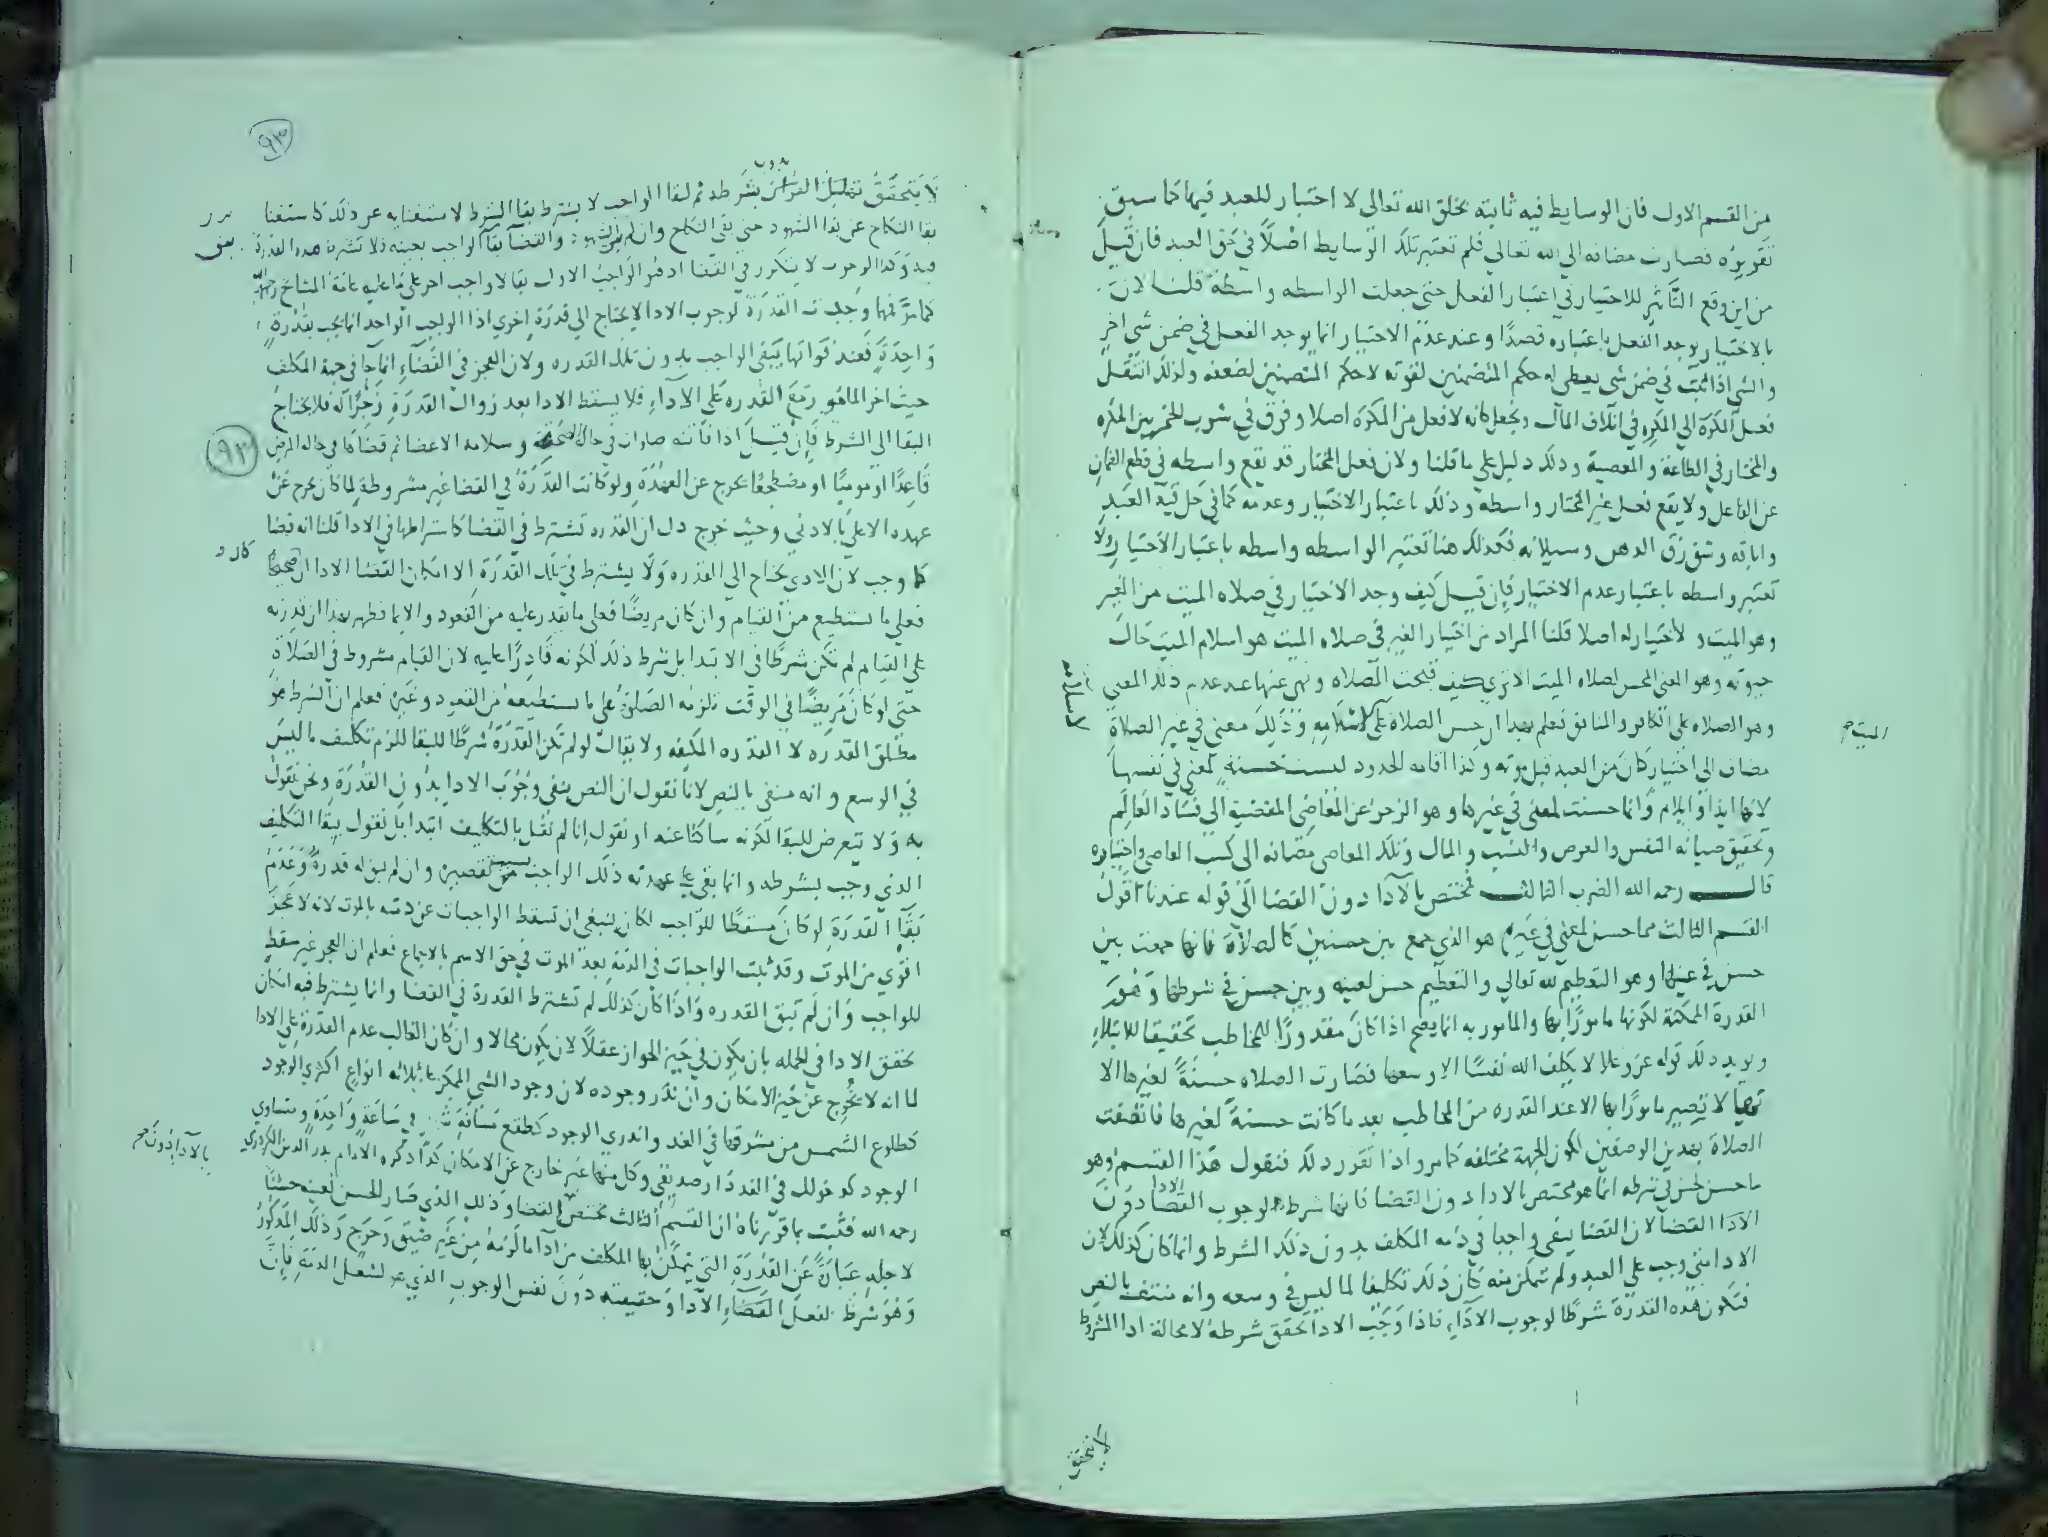 من القسم الاول فان الوسايط فيه ثابته بخلق الله تعالى لا اختيار للعبد فيها كما سبق
تقريره فصارت مضافه الي الله تعالي فلم تعتبر تلك الوسايط اصلًا في حق العبد فان قيل
من اين وقع التأثير للاختيار في اعتبار الفعل حتى جعلت الواسطه واسطة قلنا لان
بالاختيار يوجد الفعل باعتباره قصدًا وعند عدم الاختيار انما يوجد الفعل في ضمن شي اخر
والشي اذا ثبت في ضمن شي يعطي له حكم المتضمنين لقوته لا حكم المتضمنين لضعفه ولذلك انتقل
فعل المكره الي المكرِه في اتلاف المال ويجعل كانه لا فعل من المكره اصلا وفرق في شرب الخمر بين المكره
والمختار في الطاعة والمعصية وذلك دليل علي ما قلنا ولان فعل المختار قد يقع واسطه في قطع الضمان
عن الفاعل ولا يقع فعل غير المختار واسطه وذلك باعتبار الاختيار وعدمه كما في حل قيد العبد
واباقه وشق زق الدهن وسيلانه فكذلك هنا تعتبر الواسطه واسطه باعتبار الاختيار ولا
تعتبر واسطه باعتبار عدم الاختيار فإن قيل كيف وجد الاختيار في صلاه الميت من الغير
وهو الميت و لا اختيار له اصلا قلنا المراد من اختيار الغير في صلاه الميت هو اسلام الميت حال
حيوته وهو المعنى المحسن لصلاه الميت الا تري كيف قبحت الصلاه ونهي عنها عند عدم ذلك المعني
وهو الصلاه على الكافر والمنافق فعلم بهذا ان حسن الصلاه علي اسلامه وذلك معني في غير الصلاة
مضاف الي اختيار كان من العبد قبل موته وكذا اقامه الحدود ليست حسنة لمعني في نفسها
لانها ايذا وايلام وانما حسنت لمعنى في غيرها وهو الزجر عن المعاصي المفضية الي فساد العالم
وتحقيق صيانه النفس والعرض والنسب والمال وتلك المعاصي مضافه الى كسب العاصي واختياره
قال رحمه الله الضرب الثالث مختص بالادا دون القضا الي قوله عندنا اقول
القسم الثالث مما حسن لمعني في غيره هو الذي جمع بين حسنين كالصلاة فانها جمعت بين
حسن في عينها وهو التعظيم لله تعالي والتعظيم حسن لعينه وبين حسن في شرطها وهو
القدرة الممكنة لكونها مامورًا بها والمامور به انما يصح اذا كان مقدورًا للمخاطب تحقيقا للابتلاء
ويويد ذلك قوله عز وعلا لا يكلف الله نفسًا الا وسعها فصارت الصلاه حسنةً لغيرها الا
انها لا تصير مامورًا بها الا عند القدره من المخاطب بعد ما كانت حسنة لغيرها فاتصفت
الصلاة بهذين الوصفين لكون الجهة مختلفه كما مر واذا تقرر ذلك فنقول هذا القسم وهو
ما حسن لحسن في شرطه انما هو مختص بالادا دون القضا فانها شرط لوجوب الادا دون
القضا لان القضا يبقى واجبا في ذمه المكلف بدون ذلك الشرط وانما كان كذلك لان
الادا متي وجب علي العبد ولم يتمكن منه كان ذلك تكليفا لما ليس في وسعه وانه منتف بالنص
فتكون هذه القدرة شرطًا لوجوب الاداء فاذا وجب الادا تحقق شرطه لا محالة اذا المشروط
الميت
لا يتحقق
٩٣
لا يتحقق بدون شرطه ثم لبقا الواجب لا يشترط بقا الشرط لاستغنايه عن ذلك كاستغنا
بقا النكاح عن بقا الشهود حتي بقي النكاح وان لم يبق الشهود والقضا بقا الواجب بعينه فلا تشترط هذه القدرة
فيه وكذا الوجوب لا يتكرر في القضا اذ هو الواجب الاول بقا لا واجب اخر على ما عليه عامة المشايخ رحمهم الله
كما مر فمهما وجدت القدرة لوجوب الادا لا يحتاج الي قدرة اخري اذ الواجب الواحد انما يجب بقدرة
واحدة فعند فواتها يبقي الواجب بدون تلك القدره ولان العجز في القضاء انما جا في جهة المكلف
حيث اخر المامور مع القدره على الاداء فلا يسقط الادا بعد زوال القدرة زجرًا له فلا يحتاج
البقا الى الشرط فإن قيل اذا فاتته صلوات في حاله الصحة وسلامه الاعضا ثم قضاها في حاله المرض
٩٣
قاعدًا او موميًا او مضطجعًا يخرج عن العهدة ولو كانت القدرة في القضا غير مشروطة لما كان يخرج عن
عهده الاعلى بالادني وحيث خرج دل ان القدره تشترط في القضا كاشتراطها في الادا قلنا انه قضا
كما وجب لان الادا يحتاج الي القدره ولا يشترط في تلك القدرة الا امكان القضا الادا ان صحيحا
فعلي ما يستطيع من القيام وان كان مريضًا فعلى ما يقدر عليه من القعود والايما فظهر بهذا ان قدرته
علي القيام لم تكن شرطًا في الابتدا بل شرط ذلك لكونه قادرًا عليه لان القيام مشروط في الصلاة
حتى لو كان مريضًا في الوقت تلزمه الصلوة على ما يستطيعه من القعود وغيره فعلم ان الشرط هو
مطلق القدره لا القدره المكيفه ولا يقال لو لم تكن القدرة شرطًا للبقا للزم تكليف ما ليس
في الوسع وانه منفي بالنص لانا نقول ان النص ينفي وجوب الادا بدون القدرة ونحن نقول
به ولا يتعرض للبقا لكونه ساكتا عنه او نقول انا لم نقل بالتكليف ابتدا بل نقول ببقا التكليف
الذي وجب بشرطه وانما بقي علي عهدته ذلك الواجب بسبب تقصيره وان لم يبق له قدرة وعدم
بقآ القدرة لو كان مسقطًا للواجب لكان ينبغي ان تسقط الواجبات عن ذمته بالموت لانه لا عجز
اقوي من الموت وقد بقيت الواجبات في الذمة بعد الموت في حق الاثم بالاجماع فعلم ان العجز غير مسقط
للواجب وان لم تبق القدره واذا كان كذلك لم تشترط القدرة في القضا وانما يشترط فيه امكان
تحقق الادا في الجمله بان يكون في حيز الجواز عقلًا لان يكون محالا وان كان الغالب عدم القدرة على الادا
لما انه لا يخرج عن حيز الامكان وان ندر وجوده لان وجود الشي الممكن علي ثلاثه انواع اكثري الوجود
كطلوع الشمس من مشرقها في الغد واندري الوجود كقطع مسافة شهر في ساعة واحدة ومتساوي
الوجود كدخولك في الغد دار صديقي وكل منها غير خارج عن الامكان كذا ذكره الامام بدر الدين الكردري
رحمه الله فثبت بما قررناه ان القسم الثالث مختص القضا وذلك الذي صار الحسن لعينه حسنًا
لاجله عبارة عن القدرة التي يتمكن بها المكلف من ادآ ما لزمه من غير ضيق وحرج وذلك المذكور
وهو شرط لفعل القضاء الادا وحقيقته دون نفس الوجوب الذي هو لشغل الذمة فإن
بالادا دون صح